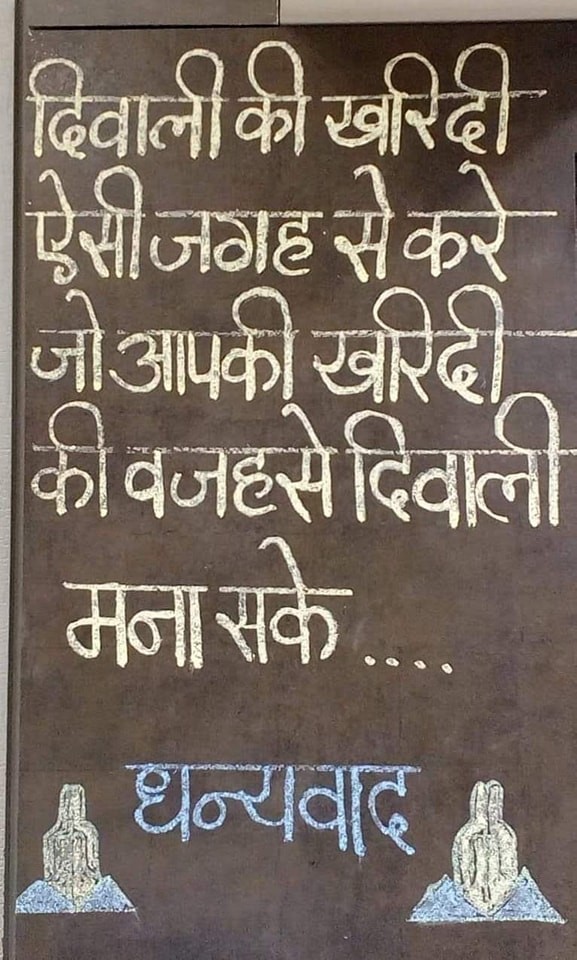 दिवाली की खरिदी
ऐसी जगह से करे
जो आपकी खरिदी
की वजहसे दिवाली
मना सके ....
धन्यवाद